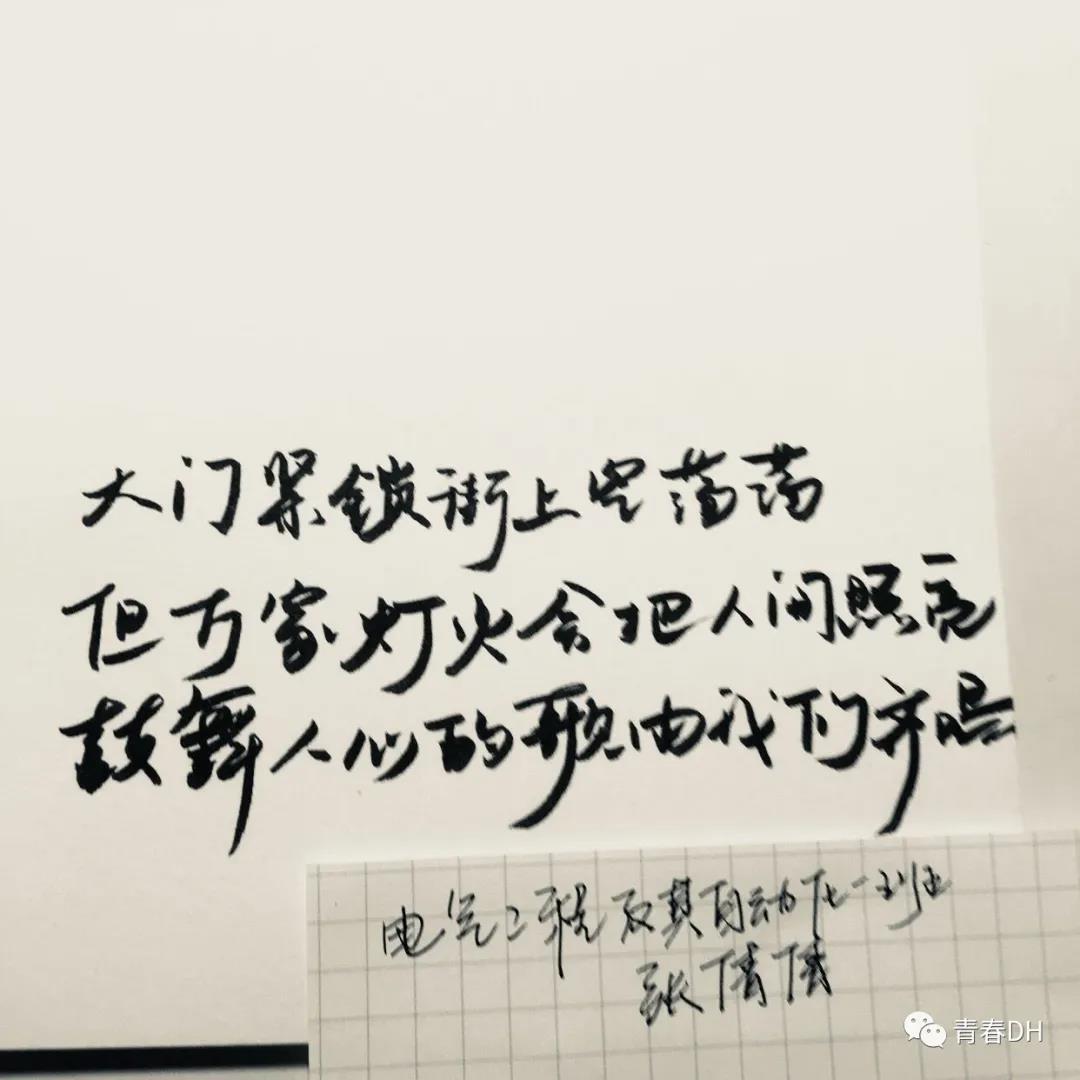 大门紧锁街上空荡荡
但万家灯火会把人间照亮
鼓舞人心的歌由我们齐唱
电气工程及其自动化一班
张倩倩
青春DH